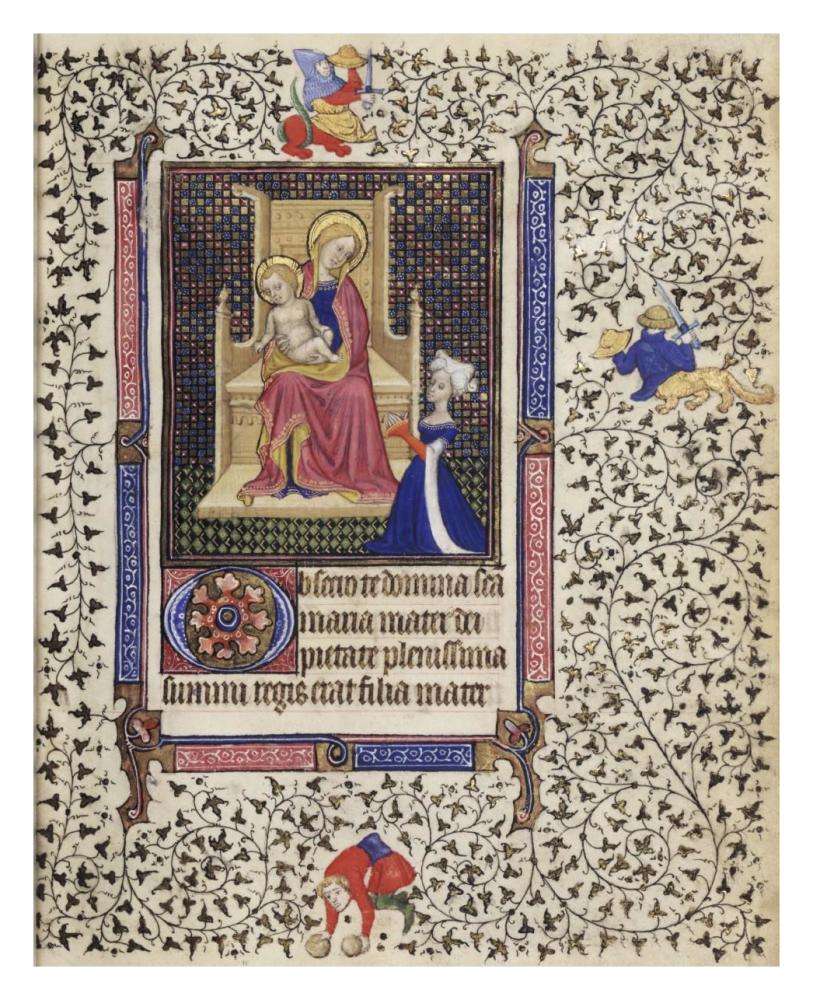 Obsecro te domina scā
maria mater dei
pietate plenissima
summi regis erat filia mater